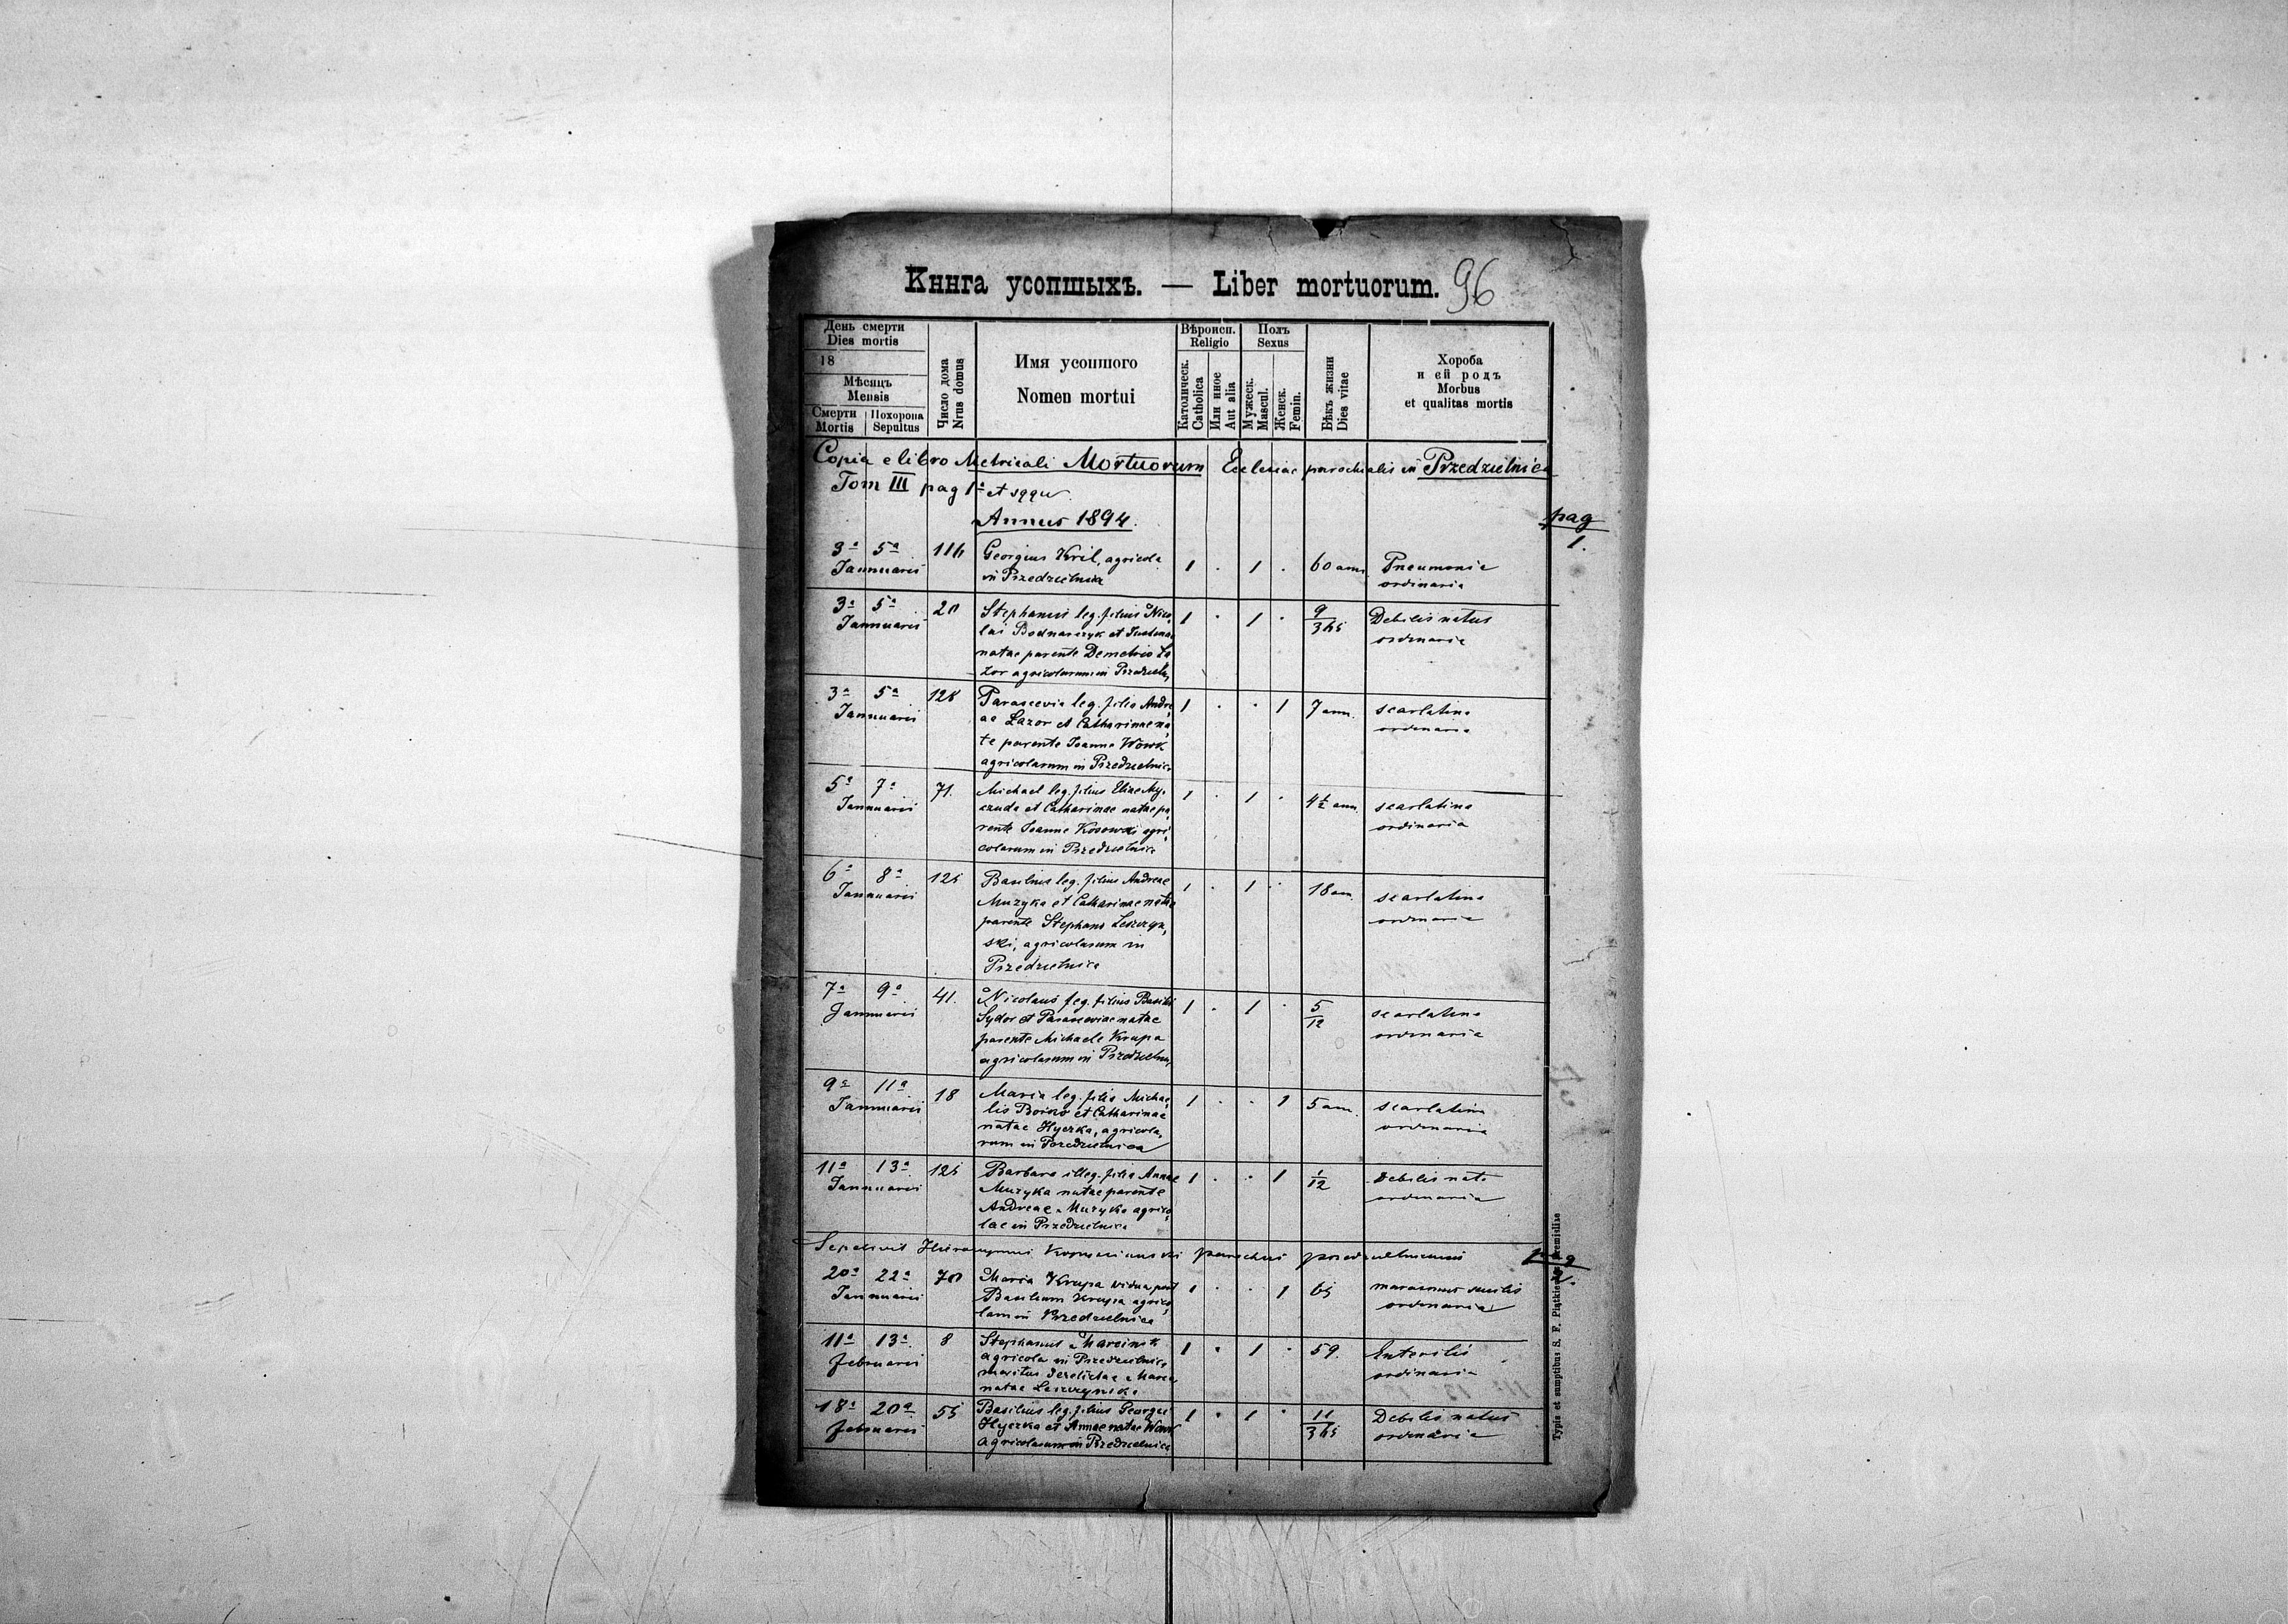 Книга усопшыхъ. — Liber mortuorum. 96
День смерти
Dies mortis
18
Мѣсяцъ
Mensis
Смерти
Mortis
Похорона
Sepultus
Число дома
Nrus domus
Имя усопшого
Nomen mortui
Вѣроисп.
Religio
Католическ.
Catholica
Или иное
Aut alia
Полъ
Sexus
Мужеск.
Mascul.
Женск.
Femin.
Вѣкъ жизни
Dies vitae
Хороба
и ей родъ
Morbus
et qualitas mortis
Copia e libro Metricali Mortuorum Ecclesiae parochialis in Przedzielnica
Tom III pag 1 et sqqu
Annus 1894.
pag
1.
3a 5a 116 Georgius Kril, agricola
Januarii in Przedzielnica 1 . 1 . 60 ann. Pneumonia
ordinaria
3a 5a 20 Stephanus leg. filius Nico,
Januarii lai Bodnarczyk et 1 . 1 . 9/365 Debilis natus
natae parente Demetrio La ordinaria
zor agricolarum in Przedzieln,
3a 5a 128 Parascevia leg. filia Andre 1 . . 1 7 ann. scarlatina
Januarii ae Lazor et Catharinae na, ordinaria
te parente Joanne Wowk
agricolarum in Przedzielnica
5a 7a 71. Michael leg. filius Eliae My, 1 . 1 . 4½ ann. scarlatina
Januarii czuda et Catharinae natae pa, ordinaria
rente Joanne Kosowski agri,
colarum in Przedzielnica
6a 8a 125 Basilius leg. filius Andreae 1 . 1 . 18 an. scarlatina
Januarii Muzyka et Catharinae natae ordinaria
parente Stephano Leszczyn,
ski, agricolarum in
Przedzielnica
7a 9a 41. Nicolaus leg. filius Basilii 1 . 1 . 5/12 scarlatina
Januarii Sydor et Parasceviae natae ordinaria
parente Michaele Krupa
agricolarum in Przedzieln,
9a 11a 18 Maria leg. filia Michae, 1 . . 1 5 an. scarlatina
Januarii lis Boiko et Catharinae ordinaria
natae Hyczka, agricola,
rum in Przedzielnica
11a 13a 125 Barbara illeg. filia Annae 1 . . 1 1/12 Debilis nata
Januarii Muzyka natae parente ordinaria
Andreae Muzyka agrico,
lae in Przedzielnica
Sepelivit parochus
20a 22a 70 Maria Krupa vidua post 1 . . 1 65 marasmus senilis
Januarii Basilium Krupa agrico, ordinaria
lam in Przedzielnica
11a 13a 8 Stephanus 1 . 1 . 59.
Februarii agricola in Przedzielnica ordinaria
maritus derelictae Mariae
natae Leszczynska
18a 20a 55 Basilius leg. filius Georgii 1 . 1 . 11/365 Debilis natus
Februarii Hyczka et Annae natae Wowk ordinaria
agricolarum in Przedzielnica
Typis et sumptibus S. F. Piątkiewicz Premisliae